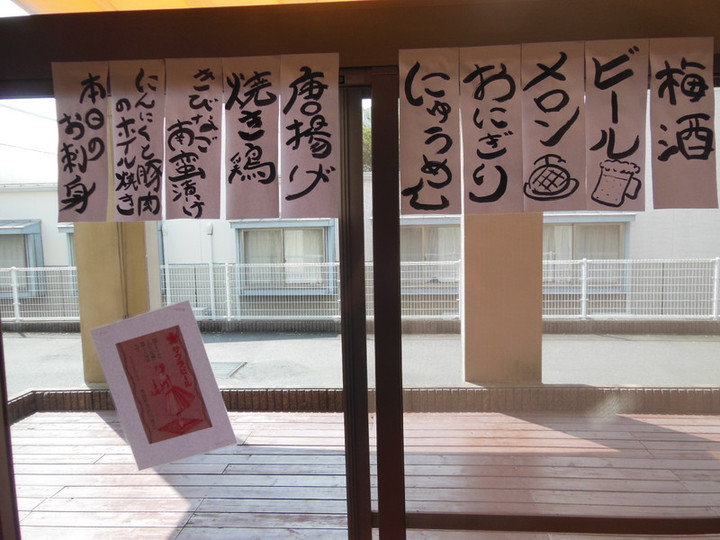 梅酒
ビール
メロン
おにぎり
にゅうめん
唐揚げ
焼き鶏
きびなご
南蛮漬け
にんにくと豚肉
のホイル焼き
本日の
お刺身